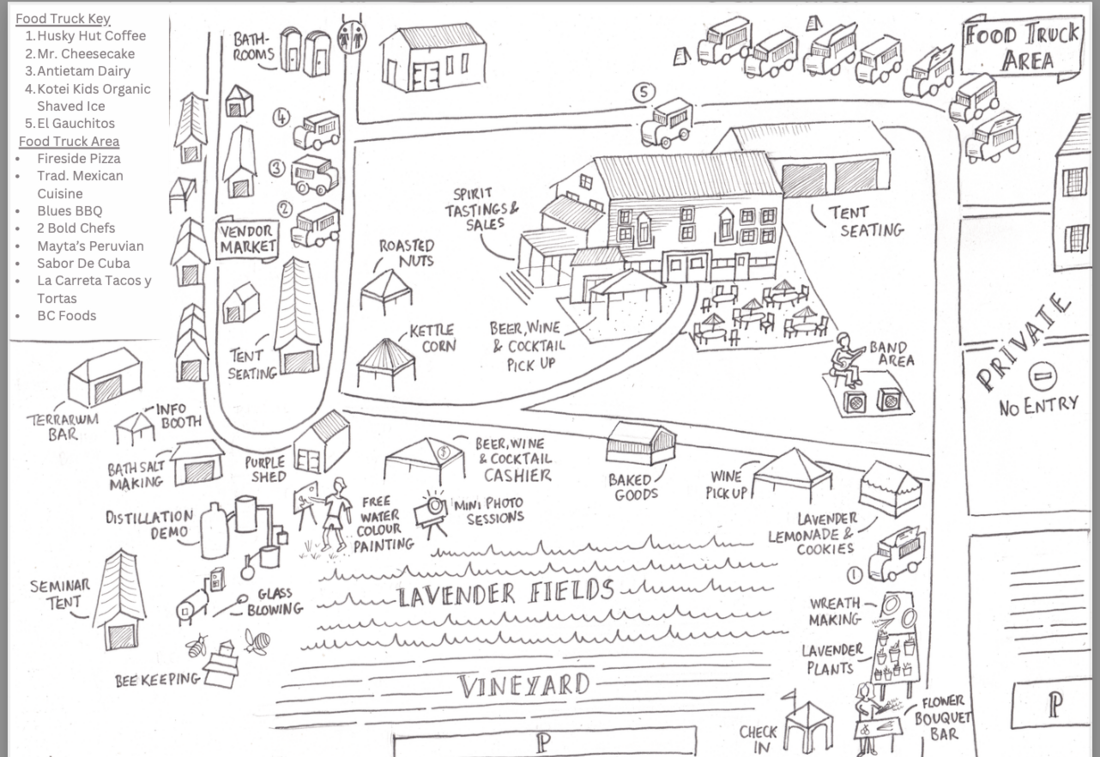 Food Truck Key
1. Husky Hut Coffee
2. Mr. Cheesecake
3. Antietam Dairy
4. Kotei Kids Organic
Shaved Ice
5. El Gauchitos
Food Truck Area
• Fireside Pizza
• Trad. Mexican
Cuisine
• Blues BBQ
• 2 Bold Chefs
• Mayta's Peruvian
• Sabor De Cuba
• La Carreta Tacos y
Tortas
• BC Foods
BATH-
ROOMS
FOOD TRUCK
AREA
5
4
3
2
VENDOR
MARKET
SPIRIT
TASTINGS &
SALES
TENT
SEATING
ROASTED
NUTS
KETTLE
CORN
BEER, WINE
& COCKTAIL
PICK UP
TENT
SEATING
BAND
AREA
PRIVATE
NO ENTRY
TERRARIUM
BAR
INFO
BOOTH
BATH SALT
MAKING
PURPLE
SHED
$
BEER, WINE
& COCKTAIL
CASHIER
BAKED
GOODS
WINE
PICK UP
LAVENDER
LEMONADE &
COOKIES
DISTILLATION
DEMO
FREE
WATER
COLOUR
PAINTING
MINI PHOTO
SESSIONS
1
SEMINAR
TENT
GLASS
BLOWING
LAVENDER FIELDS
WREATH
MAKING
LAVENDER
PLANTS
BEE KEEPING
VINEYARD
FLOWER
BOUQUET
BAR
CHECK
IN
P
P